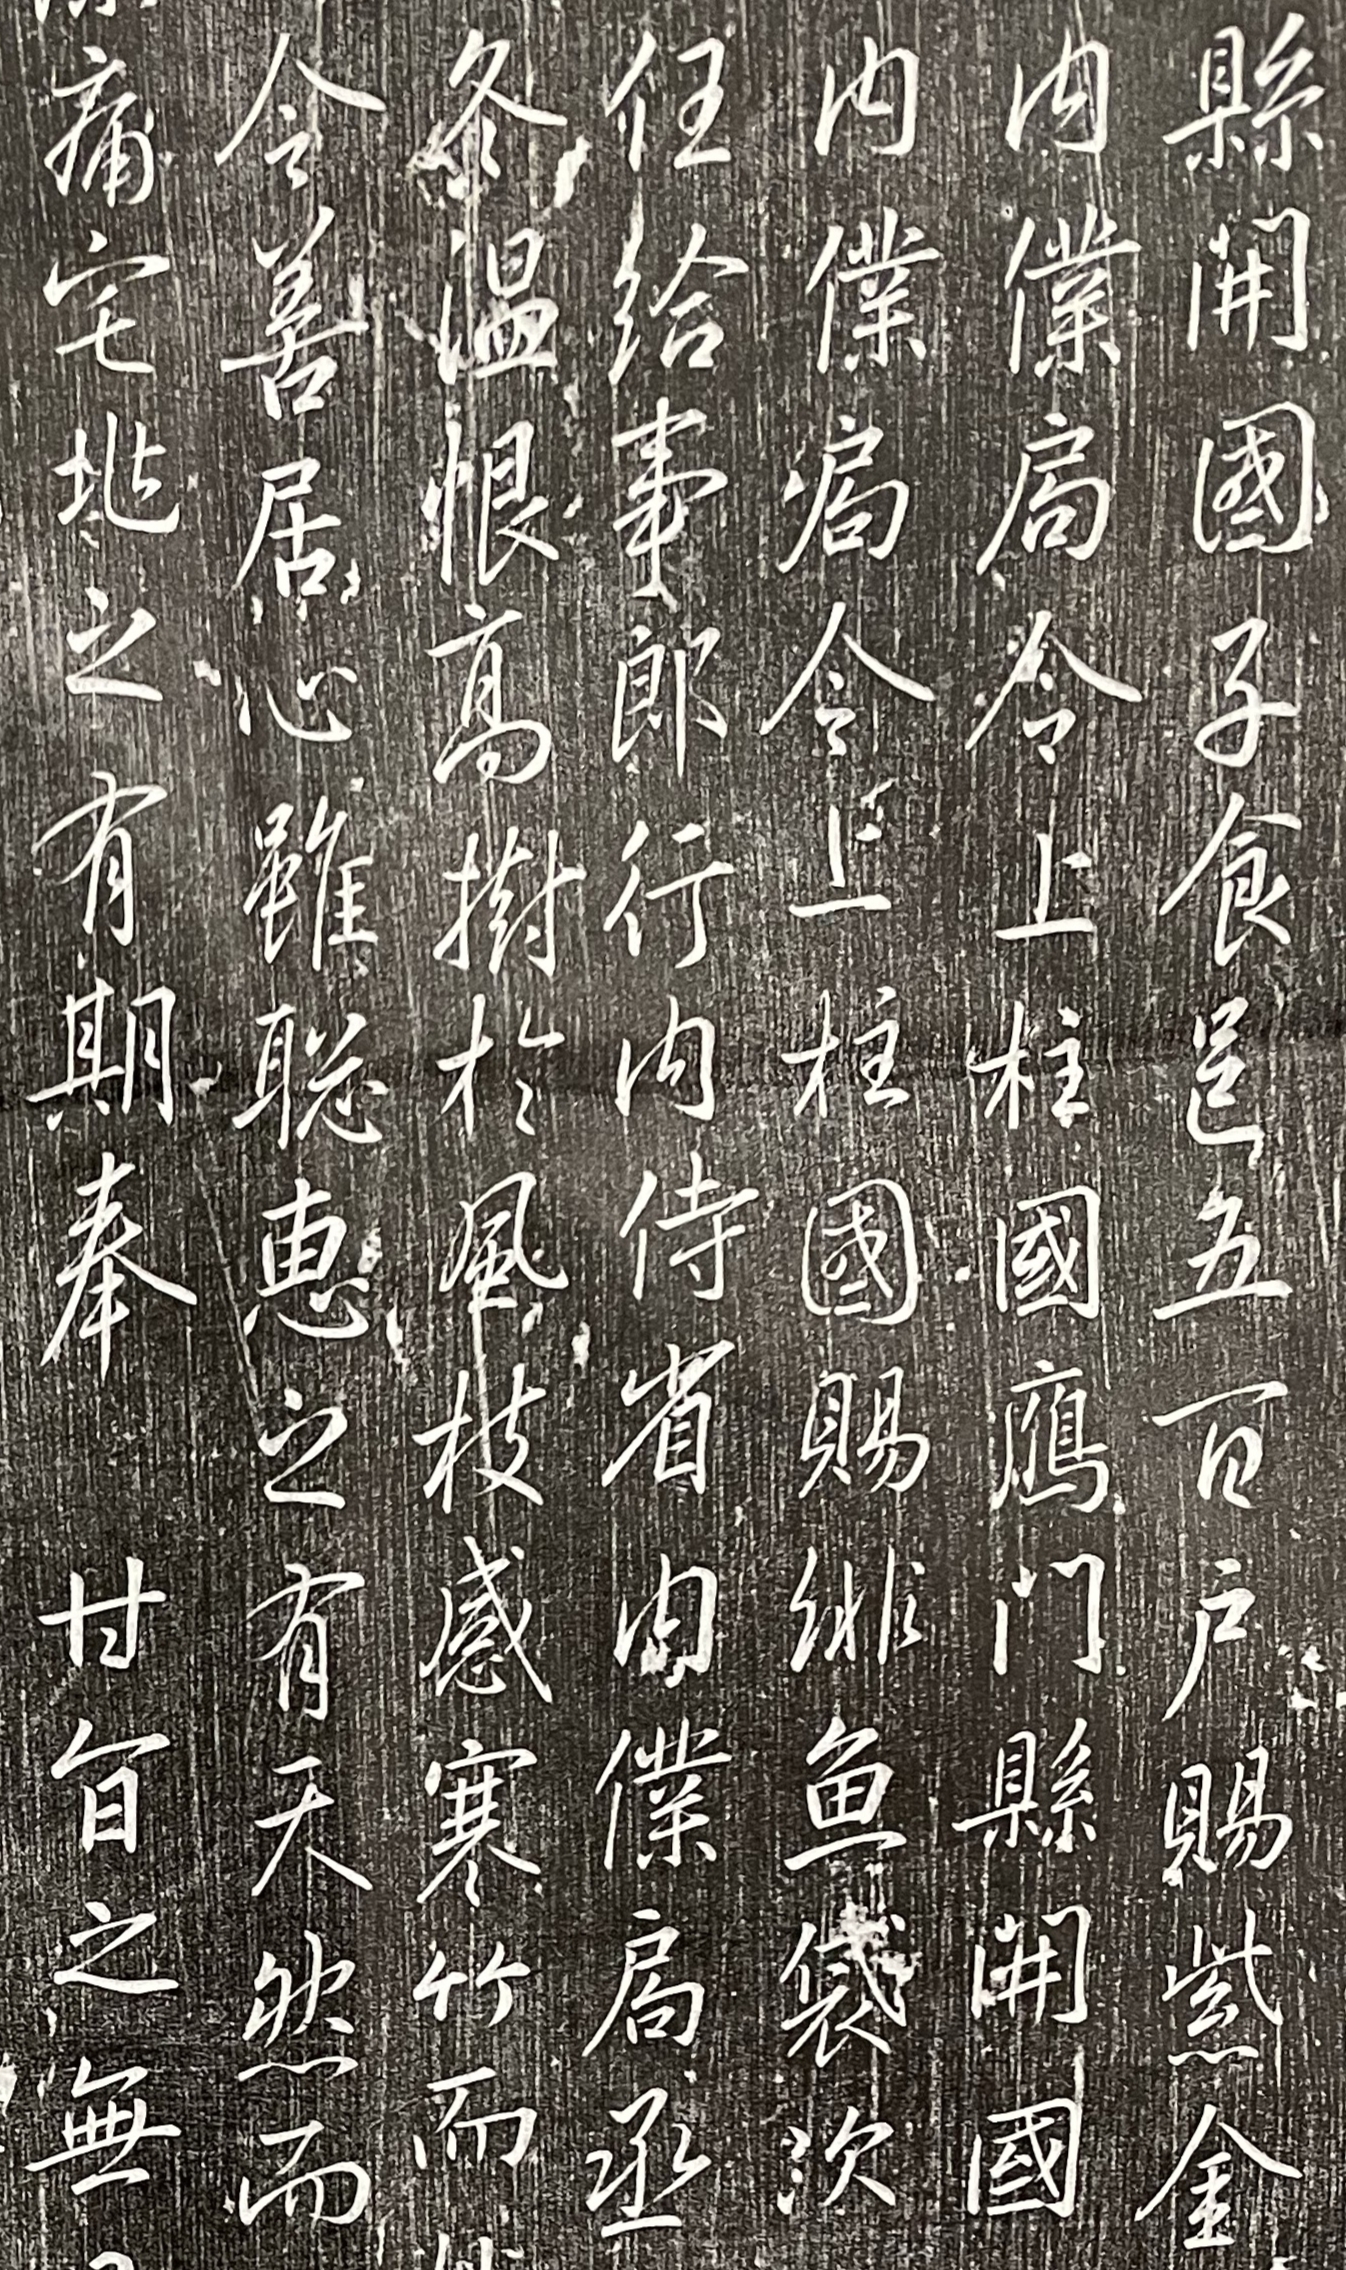 縣開國子食邑五百户賜紫金
内僕局令上柱國鴈門縣開國
内僕局令上柱國賜緋魚袋次
任給事郎行内侍省内僕局丞
冬温恨高樹於風枝感寒竹而
令善居心雖聡惠之有天然而
痛宅兆之有期奉甘旨之無